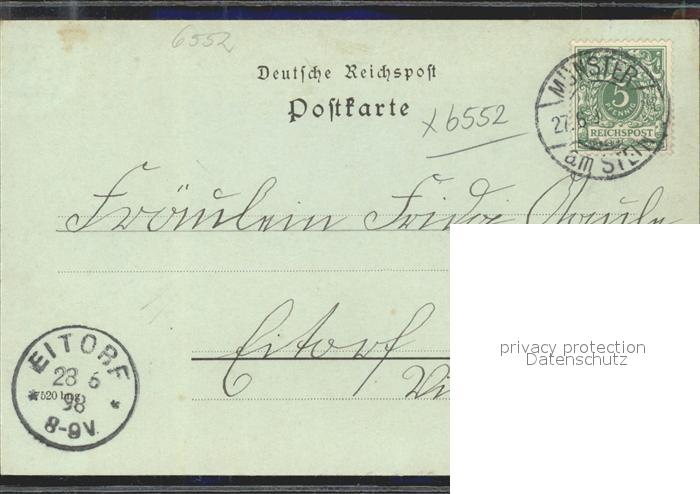 6552
Deutsche Reichspost
Postkarte
x6552
MÜNSTER
27.6
am STEIN
5
PFENNIG
REICHSPOST
Fräulein Frida
Eitorf
privacy protection
Datenschutz
EITORF
28 6
98
8-9V.